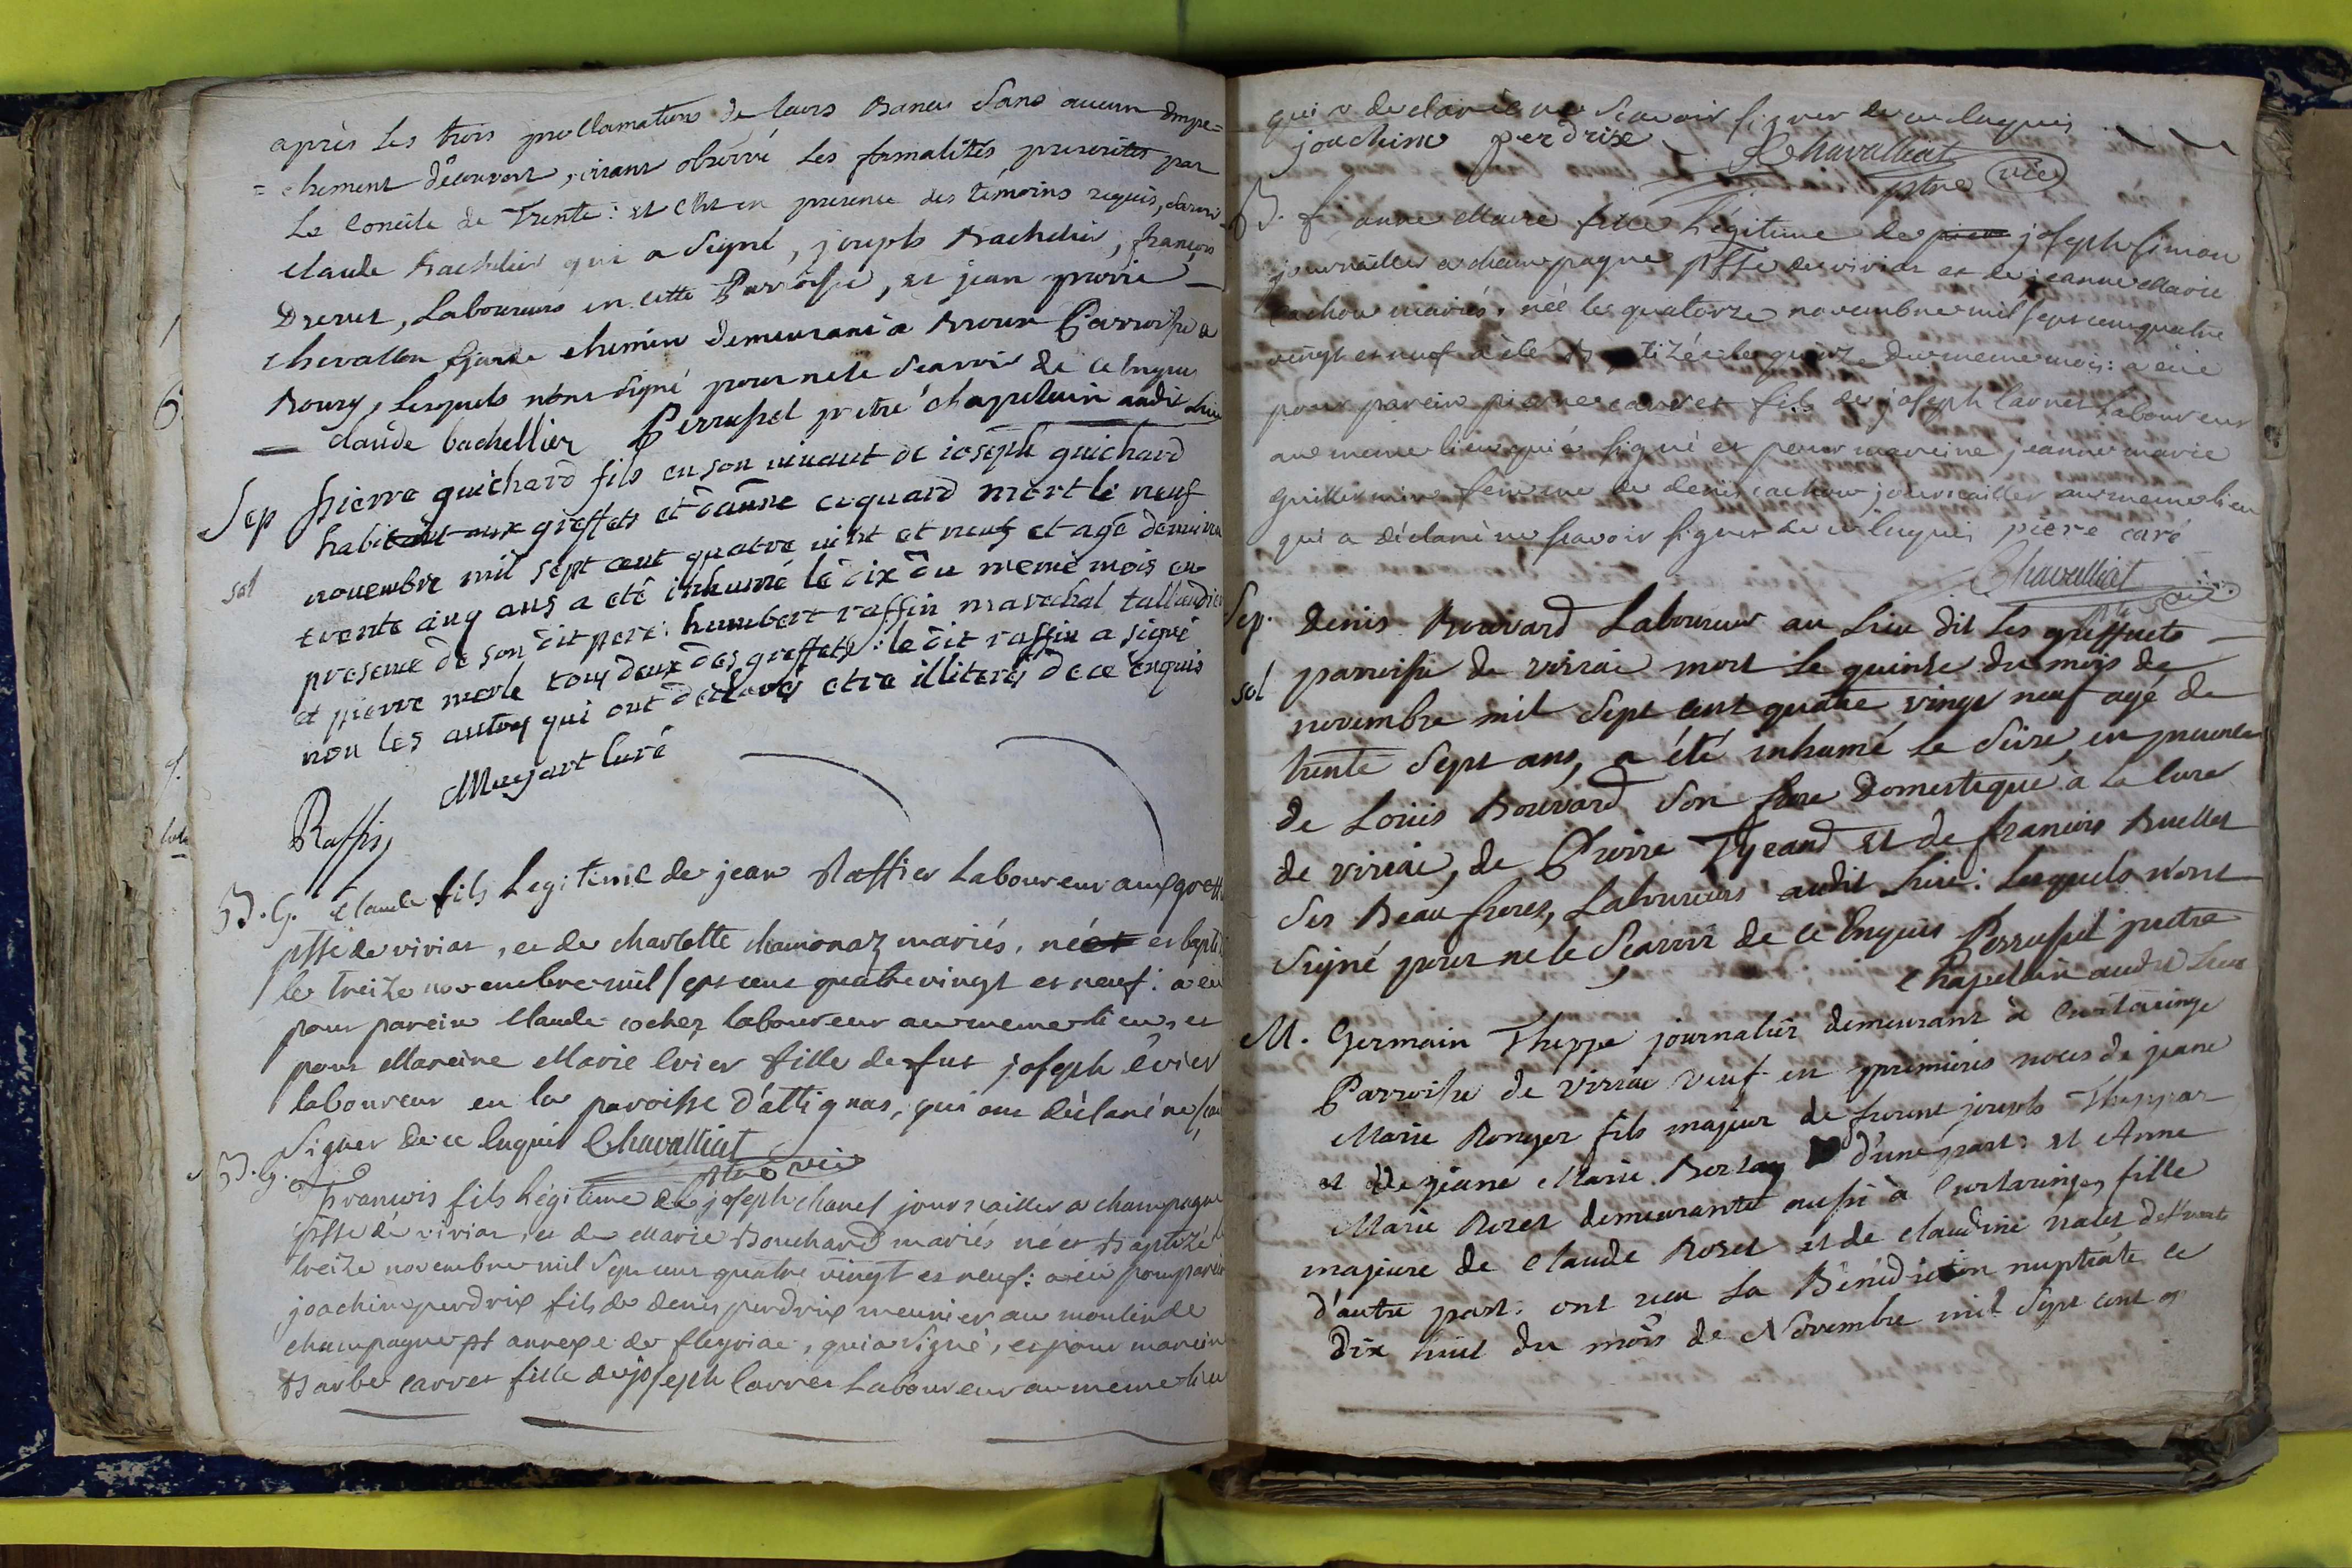 après les trois proclamations de leurs Bancs sans aucun Empe=
=chement découvert, aiant observé les formalités prescrites par
Le Concile de Trente: et c'est en presence des témoins requis,
claude Bachelier qui a signé, joseph Bachelier, françois
Drevet, Laboureurs en cette Parroisse, et jean marie
chevallon Garde chemin demeurant à Brour Parroisse de
Bourg, lesquels n'ont signé pour ne le scavoir de ce Enquis
claude bachellier Perruset pretre chapelain audit Lieu
Sep pierre guichard fils en son vivant de ioseph guichard
habitant aux greffets et d'anne ecquard mort le neuf
sol novembre mil sept cent quatre vint et neuf et agé denviron
trente cinq ans a eté inhumé le dix du meme mois en
presence de son dit pere: humbert raffin marechal tallandier
et pierre merle tous deux des greffets: le dit raffin a signé
non les autres qui ont declaré etre illiterés de ce enquis
Raffin Curé
B.G. Claude fils Legitime de jean Raffier Laboureur aux greff
psse de viriat, et de charlotte chamonaz mariés, né et bapti
le treize novembre mil sept cent quatre vingt et neuf: a eü
pour parein Claude cochez laboureur au meme lieu, et
pour Mareine Marie Evier fille de fut joseph Evier
laboureur en la paroisse d'attignas, qui ont déclaré ne
signer de ce Enquis Chavalliat
ptre vic
B.G. François fils Légitime de joseph chanel journallier a champagne
psse de viriat, et de Marie Bouchard mariés né et Baptizé
treize novembre mil sept cent quatre vingt et neuf: a eü pour parein
joachim perdrix fils de denis perdrix meunier au moulin de
champagne annexe de fleyriac, qui a signé, et pour marein
Barbe carret fille de joseph Carret Laboureur au meme lieu
qui a declaré ne scavoir signer de ce Enquis
joachim perdrix Chavalliat
ptre vic
B. f anne Marie fille Légitime de joseph simon
journallier a champagne psse de viriat et de jeanne Marie
cachou mariés, née le quatorze novembre mil sept cent quatre
vingt et neuf a été Batizée le quinze du meme mois: a eü
pour parein pierre carret fils de joseph Carret Laboureur
au meme lieu qui a signé et pour mareine jeanne marie
guillermin femme de denis cachou journallier au meme lieu
qui a déclaré ne scavoir signer de ce Enquis piere caré
Chavalliat
ptre vic
Sep. denis Bouvard Laboureur au Lieu dit les greffets
sol parroisse de viriac mort le quinze du mois de
novembre mil sept cent quatre vingt neuf agé de
trente sept ans, a été inhumé le seize, en presence
de Louis Bouvard son frere domestique à la Cure
de viriac, de Pierre Tyrand et de françois Buellet
ses Beau freres, Laboureurs audit lieu: lesquels n'ont
signé pour ne le scavoir de ce Enquis Perruset pretre
Chapelain audit Lieu
M. Germain Theppe journalier demeurant à Curtaringe
Parroisse de viriac veuf en premieres noces de jeane
Marie Ronger fils majeur de furent joseph Theppe
et de jeane Marie d'une part: et Anne
Marie Rozet demeurante aussi à Curtaringe, fille
majeure de Claude Rozet et de Claudine
d'autre part: ont recu la Bénédiction nuptiale le
dix huit du mois de Novembre mil sept cent q